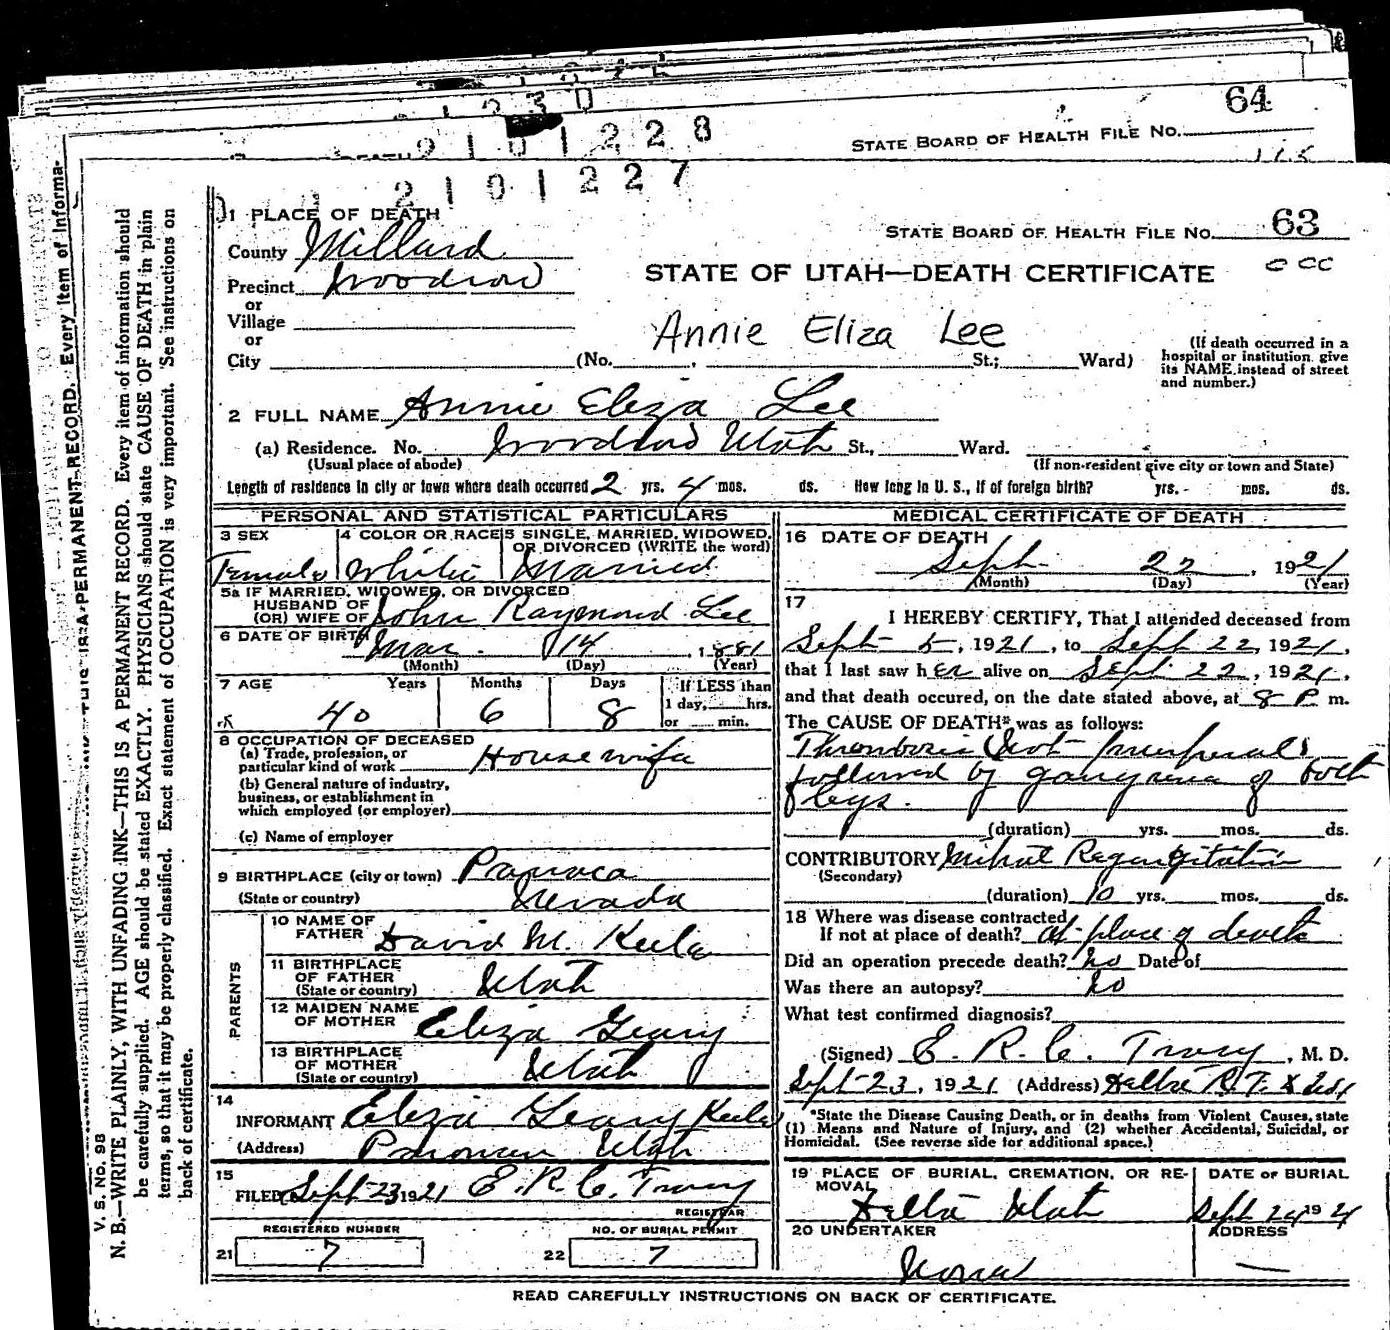 64
2101228
STATE BOARD OF HEALTH FILE No.
2101227
1 PLACE OF DEATH
STATE BOARD OF HEALTH FILE No. 63
County Millard
STATE OF UTAH—DEATH CERTIFICATE
Precinct Woodrow
or
Village
or
Annie Eliza Lee
City (No. St.; Ward)
(If death occurred in a
hospital or institution give
its NAME instead of street
and number.)
2 FULL NAME Annie Eliza Lee
(a) Residence. No. Woodrow Utah St., Ward.
(Usual place of abode) (If non-resident give city or town and State)
Length of residence in city or town where death occurred 2 yrs. 4 mos. ds. How long in U. S., if of foreign birth? yrs. mos. ds.
PERSONAL AND STATISTICAL PARTICULARS
3 SEX 4 COLOR OR RACE 5 SINGLE, MARRIED, WIDOWED,
OR DIVORCED (WRITE the word)
Female White Married
5a IF MARRIED, WIDOWED, OR DIVORCED
HUSBAND OF
(OR) WIFE OF John Raymond Lee
6 DATE OF BIRTH Mar. 14 1881
(Month) (Day) (Year)
7 AGE Years Months Days If LESS than
1 day, hrs.
or min.
40 6 8
8 OCCUPATION OF DECEASED
(a) Trade, profession, or
particular kind of work Housewife
(b) General nature of industry,
business, or establishment in
which employed (or employer)
(c) Name of employer
9 BIRTHPLACE (city or town) Panaca
(State or country) Nevada
PARENTS
10 NAME OF
FATHER David M. Keele
11 BIRTHPLACE
OF FATHER
(State or country) Utah
12 MAIDEN NAME
OF MOTHER Eliza Geary
13 BIRTHPLACE
OF MOTHER
(State or country) Utah
14
INFORMANT Eliza Geary Keele
(Address) Panacea Utah
15
FILED Sept 23 1921 E. R. C. Tracy
REGISTRAR
REGISTERED NUMBER NO. OF BURIAL PERMIT
21 7 22 7
MEDICAL CERTIFICATE OF DEATH
16 DATE OF DEATH
Sept. 22, 1921
(Month) (Day) (Year)
17
I HEREBY CERTIFY, That I attended deceased from
Sept 5, 1921, to Sept 22, 1921,
that I last saw her alive on Sept 22, 1921,
and that death occured, on the date stated above, at 8 P m.
The CAUSE OF DEATH* was as follows:
Thrombosis (Not Puerperal)
followed by gangrene of both
legs.
(duration) yrs. mos. ds.
CONTRIBUTORY Mitral Regurgitation
(Secondary)
(duration) 10 yrs. mos. ds.
18 Where was disease contracted
If not at place of death? at place of death
Did an operation precede death? No Date of
Was there an autopsy? No
What test confirmed diagnosis?
(Signed) E. R. C. Tracy, M. D.
Sept 23, 1921 (Address) Delta
*State the Disease Causing Death, or in deaths from Violent Causes, state
(1) Means and Nature of Injury, and (2) whether Accidental, Suicidal, or
Homicidal. (See reverse side for additional space.)
19 PLACE OF BURIAL, CREMATION, OR RE-
MOVAL
DATE OF BURIAL
Delta Utah Sept 24 1921
20 UNDERTAKER ADDRESS
None —
READ CAREFULLY INSTRUCTIONS ON BACK OF CERTIFICATE.
V. S. No. 98
N. B.—WRITE PLAINLY, WITH UNFADING INK—THIS IS A PERMANENT RECORD. Every item of information should
be carefully supplied. AGE should be stated EXACTLY. PHYSICIANS should state CAUSE OF DEATH in plain
terms, so that it may be properly classified. Exact statement of OCCUPATION is very important. See instructions on
back of certificate.